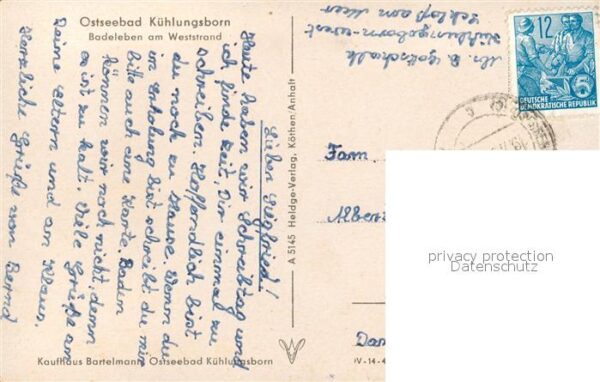 Ostseebad Kühlungsborn
Badeleben am Weststrand
Lieber Siegfried!
Heute haben wir Schreibtag und
ich finde Zeit, Dir einmal zu
schreiben. Hoffendlich bist
du noch zu Hause. Wenn du
in Erholung bist schreibst du mir
bitte auch eine Karte. Baden
können wir noch nicht, denn
es ist zu kalt. Viele Grüße an
Deine Eltern und an Klaus.
Herzliche Grüße von Bernd
Kaufhaus Bartelmann, Ostseebad Kühlungsborn
A 5145 Heldge-Verlag, Köthen/Anhalt
Gottschalk
Kühlungsborn-West
Schloß am Meer
12
DEUTSCHE
DEMOKRATISCHE REPUBLIK
Fam
Albert
Dan
IV-14-4
privacy protection
Datenschutz